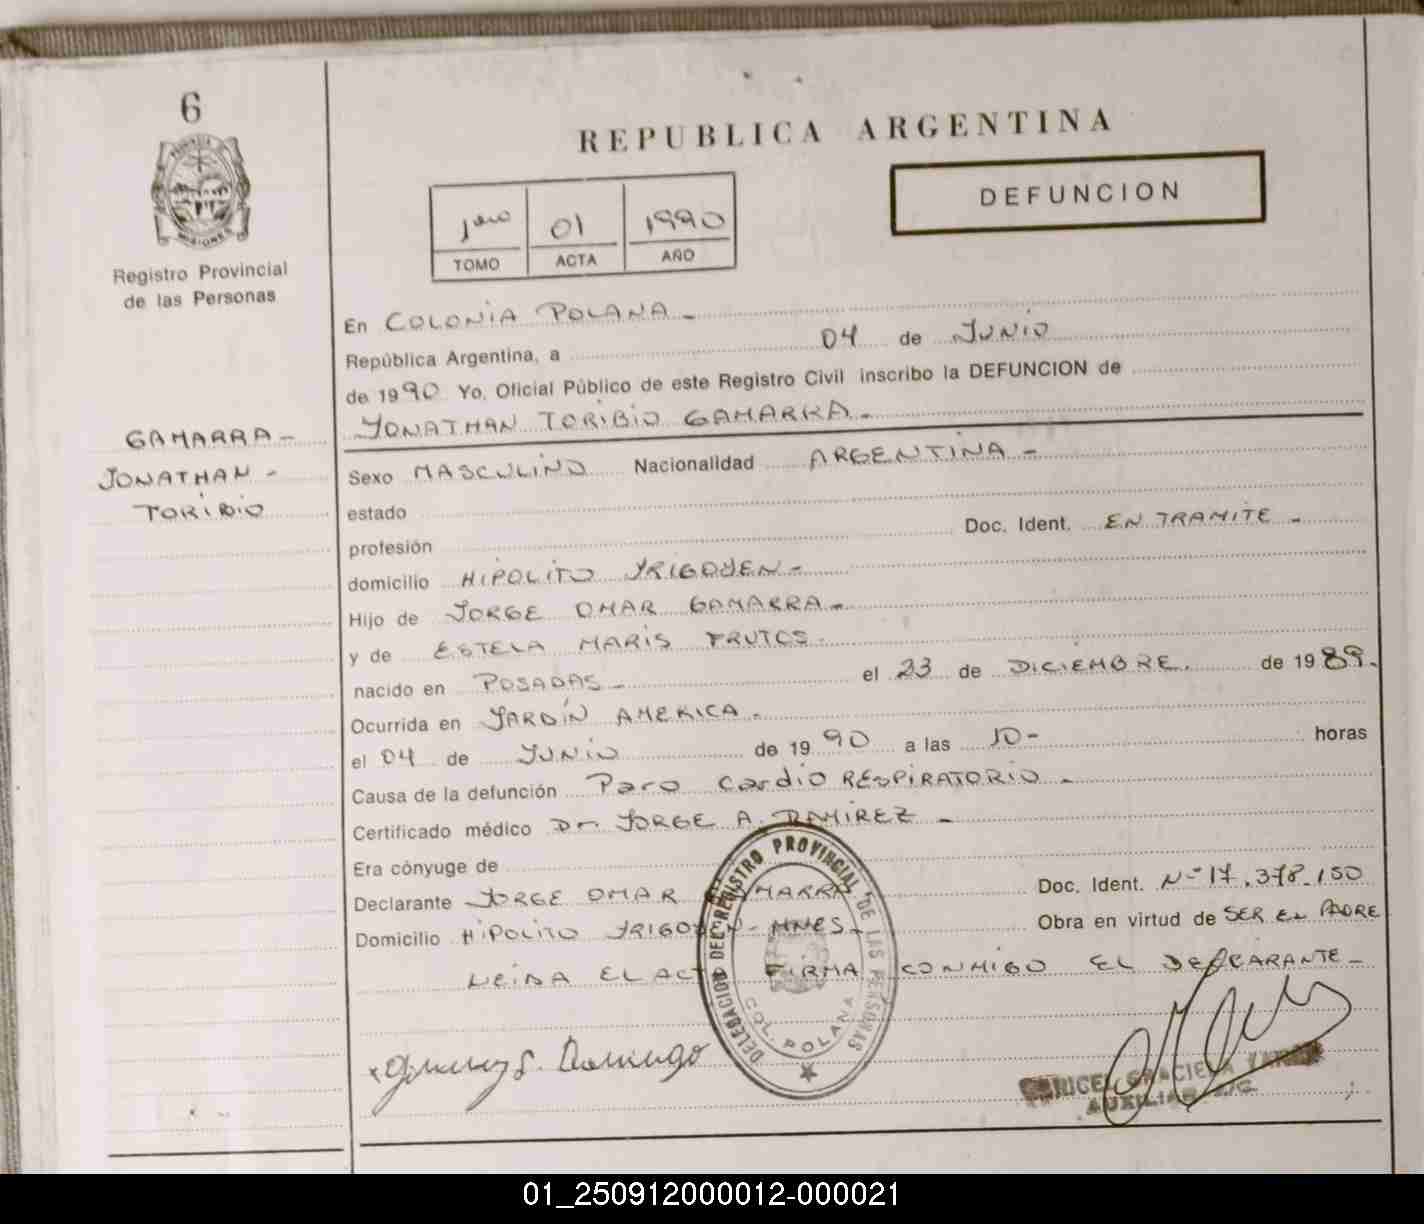 6
PROVINCIA DE
MISIONES
Registro Provincial
de las Personas
GAMARRA -
JONATHAN -
TORIBIO
REPUBLICA ARGENTINA
DEFUNCION
1ero 01 1990
TOMO ACTA AÑO
En COLONIA POLANA -
República Argentina, a 04 de JUNIO
de 1990 Yo, Oficial Público de este Registro Civil inscribo la DEFUNCION de
JONATHAN TORIBIO GAMARRA -
Sexo MASCULINO Nacionalidad ARGENTINA -
estado
profesión Doc. Ident. EN TRAMITE -
domicilio HIPOLITO YRIGOYEN -
Hijo de JORGE OMAR GAMARRA -
y de ESTELA MARIS FRUTOS.
nacido en POSADAS - el 23 de DICIEMBRE. de 1989.
Ocurrida en JARDIN AMERICA -
el 04 de JUNIO de 1990 a las 10- horas
Causa de la defunción Paro Cardio RESPIRATORIO -
Certificado médico Dr. JORGE A. RAMIREZ -
Era cónyuge de
Declarante JORGE OMAR GAMARRA Doc. Ident. Nº 17.378.150
Domicilio HIPOLITO YRIGOYEN - MNES - Obra en virtud de SER EL PADRE
LEIDA EL ACTA FIRMA CONMIGO EL DECLARANTE -
DELEGACION DEL REGISTRO PROVINCIAL DE LAS PERSONAS
COL. POLANA
Domingo
GRACIELA
AUXILIAR
01_250912000012-000021